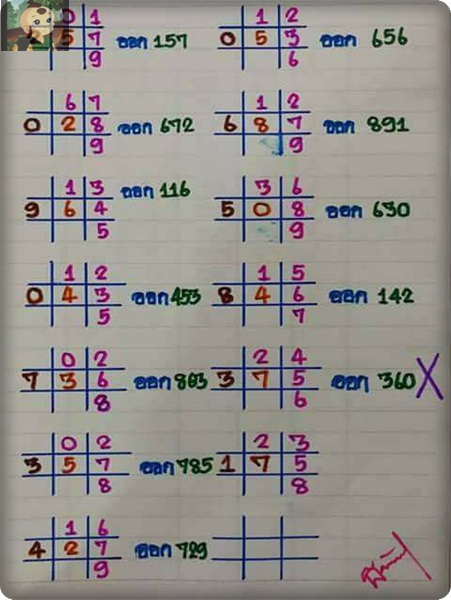 0 1
2 5 7 ออก 157
9
1 2
0 5 3 ออก 656
6
6 7
0 2 8 ออก 672
9
1 2
6 8 7 ออก 891
9
1 3 ออก 116
9 6 4
5
3 6
5 0 8 ออก 630
9
1 2
0 4 3 ออก 453
5
1 5
8 4 6 ออก 142
7
0 2
7 3 6 ออก 803
8
2 4
3 7 5 ออก 360 X
6
0 2
3 5 7 ออก 785
8
2 3
1 7 5
8
1 6
4 2 7 ออก 729
9